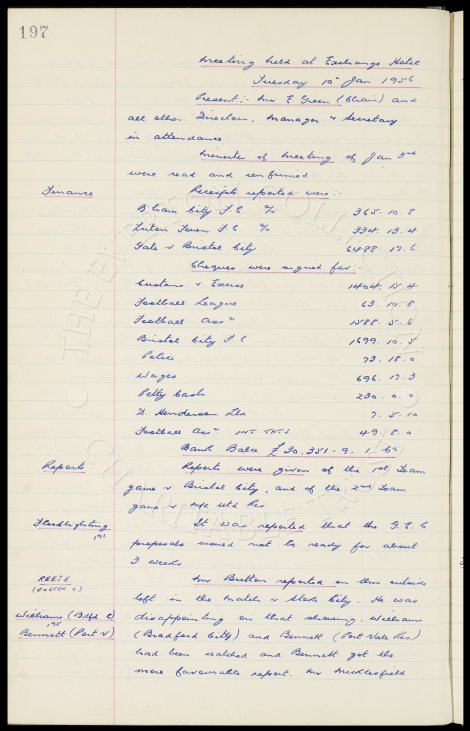 197
Meeting held at Exchange Hotel
Tuesday 10th Jan 1956
Present:- Mr E Green (Chair) and
all other Directors, Manager & Secretary
in attendance.
Minutes of Meeting of Jan 3rd
were read and confirmed
Finance Receipts reported were:-
B'ham City F C a/c 365. 10. 8
Luton Town F C a/c 334. 13. 4
Gate v Bristol City 6488. 17. 6
Cheques were signed for:-
Customs & Excise 1404. 15. 4
Football League 63. 10. 8
Football Assn 1588. 5. 6
Bristol City F C 1699. 10. 5
Police 73. 18. 0
Wages 696. 17. 3
Petty Cash 230. 0. 0
D. Henderson Ltd 7. 5. 10
Football Assn INT TKTS 49. 8. 0
Bank Balce £30,351. 9. 1.
Reports Reports were given of the 1st Team
game v Bristol City, and of the 2nd Team
game v M/c Utd Res.
Floodlighting It was reported that the G.E.C
191
proposals would not be ready for about
3 weeks
REESE Mr Britton reported on this outside
left in the match v Stoke City. He was
Williams (Bdfd C) disappointing on that showing. Williams
195
Bennett (Port V) (Bradford City) and Bennett (Port Vale Res.)
had been watched and Bennett got the
more favourable report. Mr Micklesfield
THE EVERTON COLLECTION
CHARITABLE TRUST